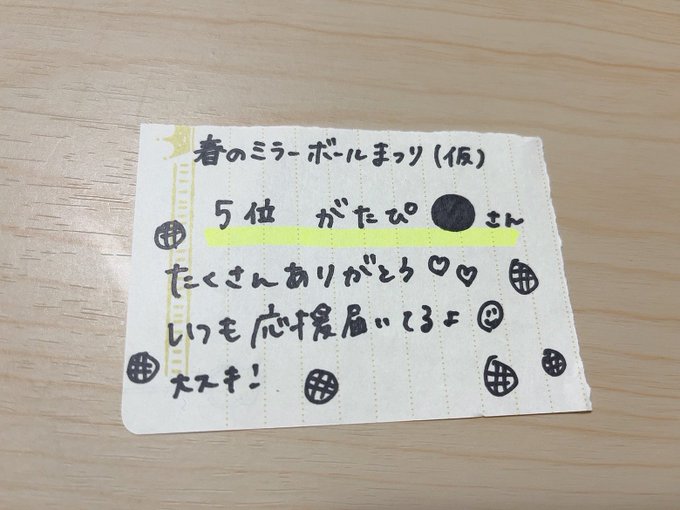 春のミラーボールまつり(仮)
5位 がたぴ●さん
たくさんありがとう♡♡
いつも応援届いてるよ☺
大スキ!